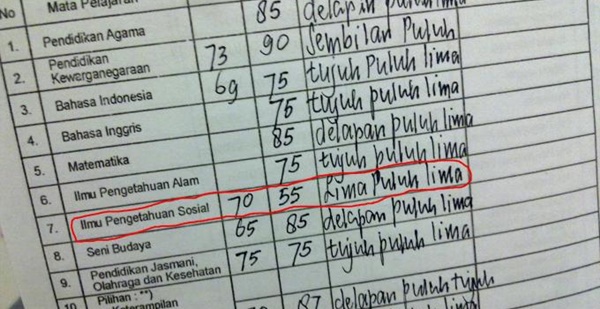 No Mata Pelajaran
1. Pendidikan Agama 85 delapan puluh lima
2. Pendidikan 73 90 Sembilan Puluh
Kewarganegaraan
3. Bahasa Indonesia 69 75 tujuh Puluh lima
4. Bahasa Inggris 75 tujuh puluh lima
5. Matematika 85 delapan puluh lima
6. Ilmu Pengetahuan Alam 75 tujuh puluh lima
7. Ilmu Pengetahuan Sosial 70 55 Lima puluh lima
8. Seni Budaya 65 85 delapan puluh lima
9. Pendidikan Jasmani, 75 75 tujuh puluh lima
Olahraga dan Kesehatan
10. Pilihan : **)
Keterampilan 87 delapan puluh tujuh
lima